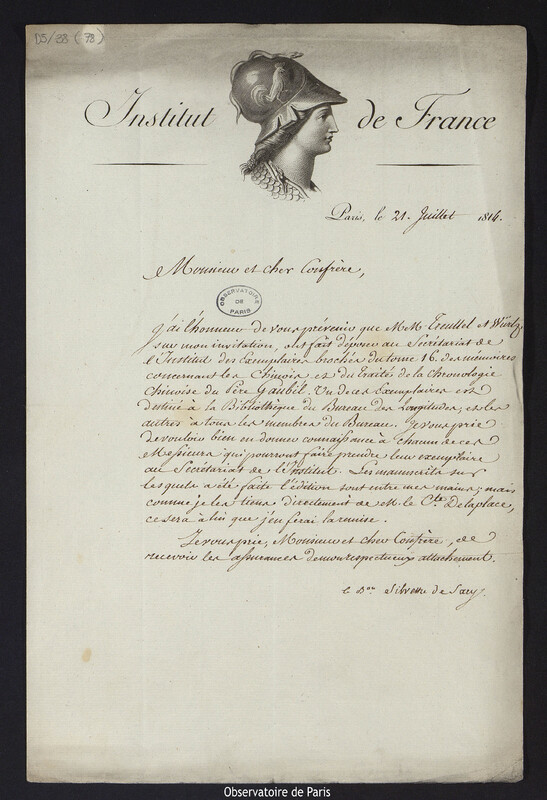 D5/28 (78)
Institut de France
Paris, le 21. Juillet 1814.
Monsieur et cher Confrère,
OBSERVATOIRE
DE
PARIS
J'ai l'honneur de vous prévenir que MM. Treuttel et Würtz,
sur mon invitation, ont fait déposer au Secrétariat de
l'Institut des Exemplaires brochés du tome 16. des mémoires
concernant les Chinois et du Traité de la Chronologie
Chinoise du Père Gaubil. Un de ces Exemplaires est
destiné à la Bibliothèque du Bureau des Longitudes, et les
autres à tous les membres du Bureau. Je vous prie
de vouloir bien en donner connaissance à chacun de ces
Messieurs qui pourront faire prendre leur exemplaire
au Secrétariat de l'Institut. Les manuscrits sur
lesquels a été faite l'édition sont entre mes mains; mais
comme je les tiens directement de M. le Cte. Delaplace,
ce sera à lui que j'en ferai la remise.
Je vous prie, Monsieur et cher Confrère, de
recevoir les assurances de mon respectueux attachement.
le Bon. Silvestre de Sacy.
Observatoire de Paris